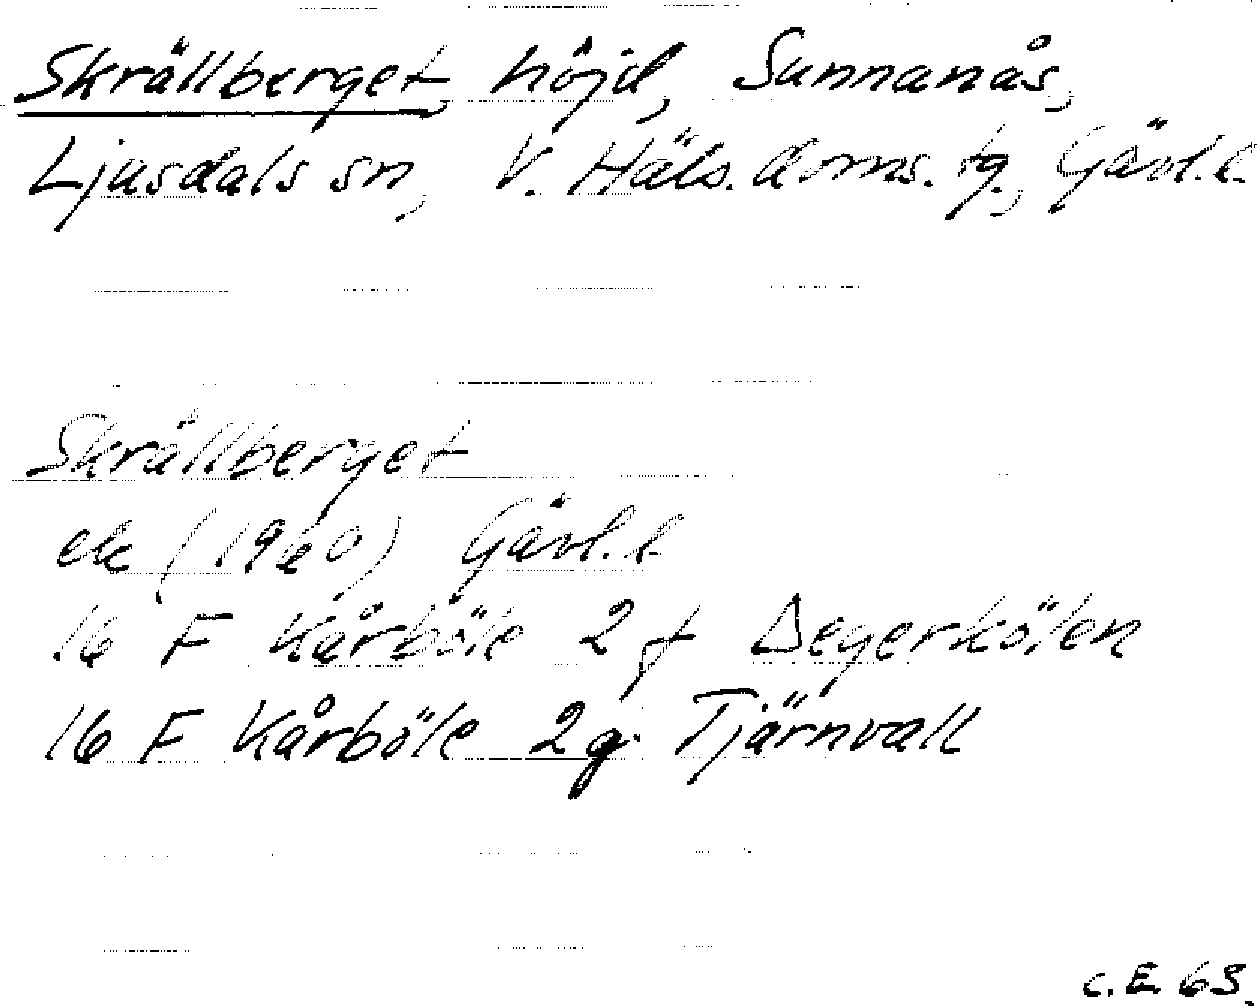 Skrällberget, höjd, Sunnanås,
Ljusdals sn, V. Häls. doms. tg., Gävl. l.
Skrällberget
ek (1960) Gävl. l.
16 F Kårböle 2 f Degerkölen
16 F Kårböle 2g Tjärnvall
C. E. 63